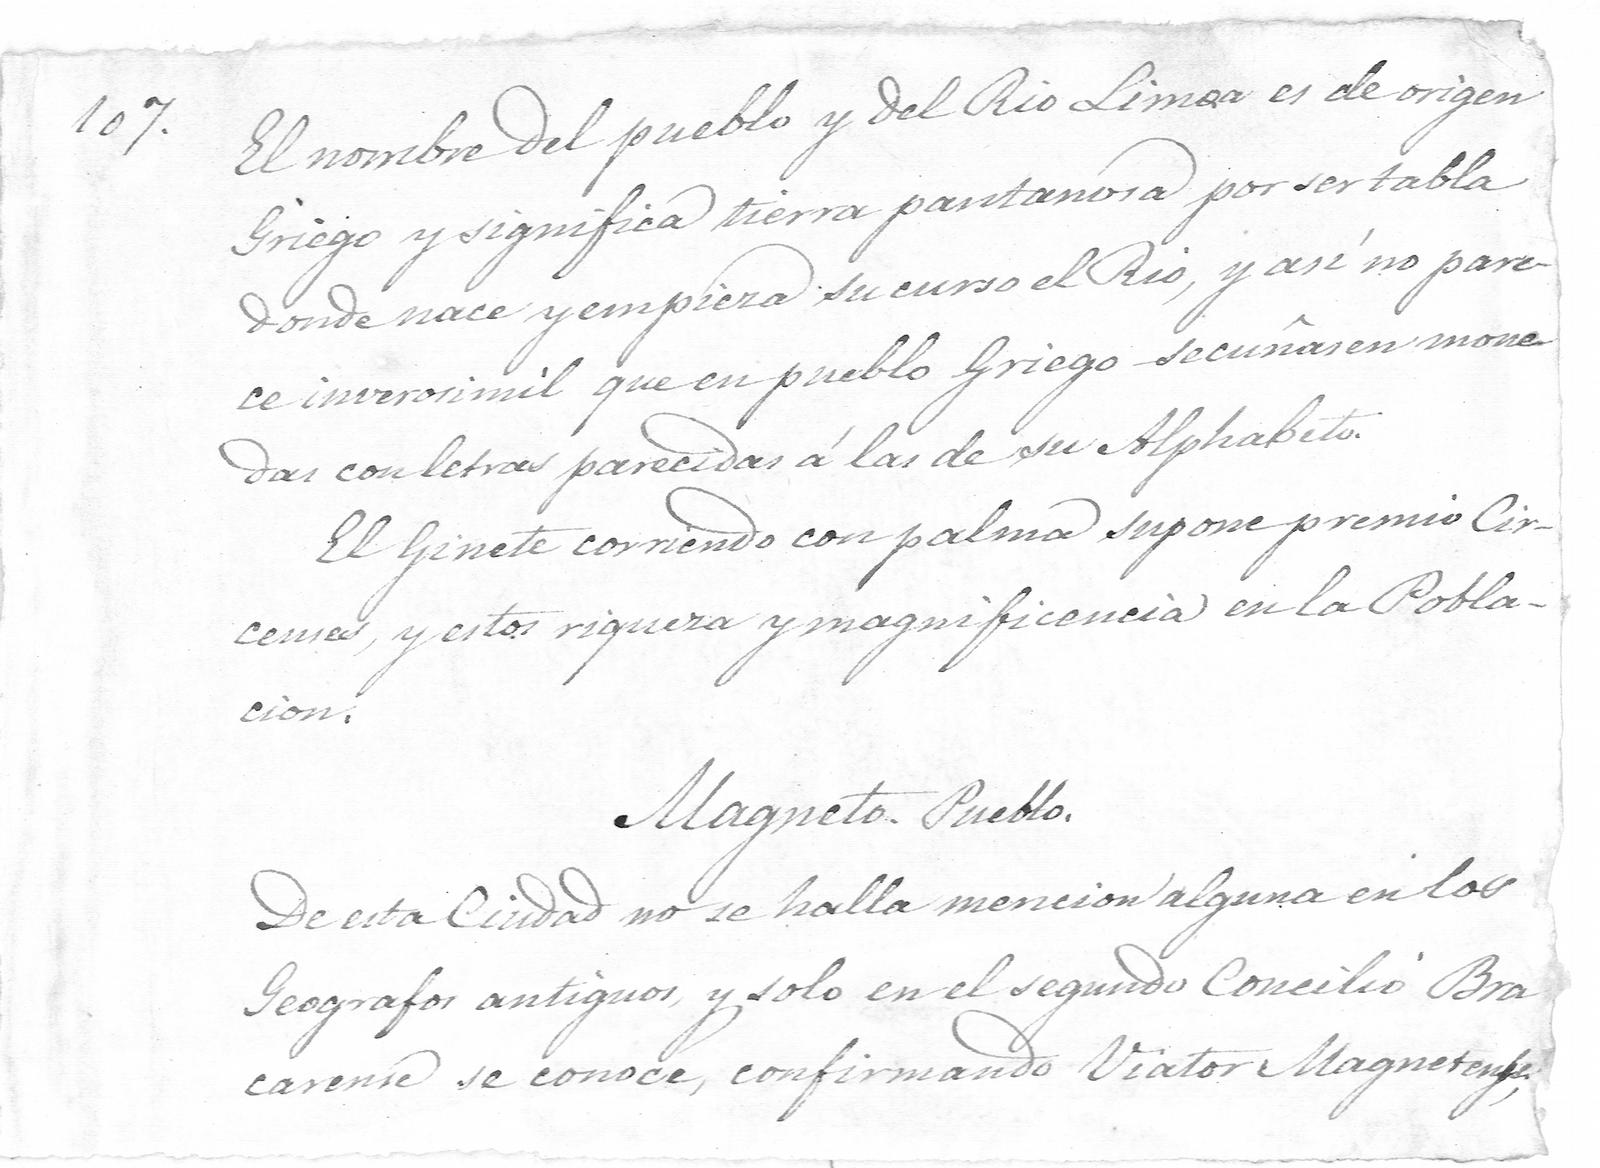 107.
El nombre del pueblo y del Rio Limea es de origen
Griego y significa tierra pantanosa por ser tabla
donde nace y empieza su curso el Rio, y asi no pare-
ce inverosimil que en pueblo Griego se cuñasen mone-
das con letras parecidas á las de su Alphabeto.
El Ginete corriendo con palma supone premio Cir-
censes, y estos riqueza y magnificencia en la Pobla-
cion.
Magneto. Pueblo.
De esta Ciudad no se halla mencion alguna en los
Geografos antiguos, y solo en el segundo Concilio Bra
carense se conoce, confirmando Viator Magnetense,